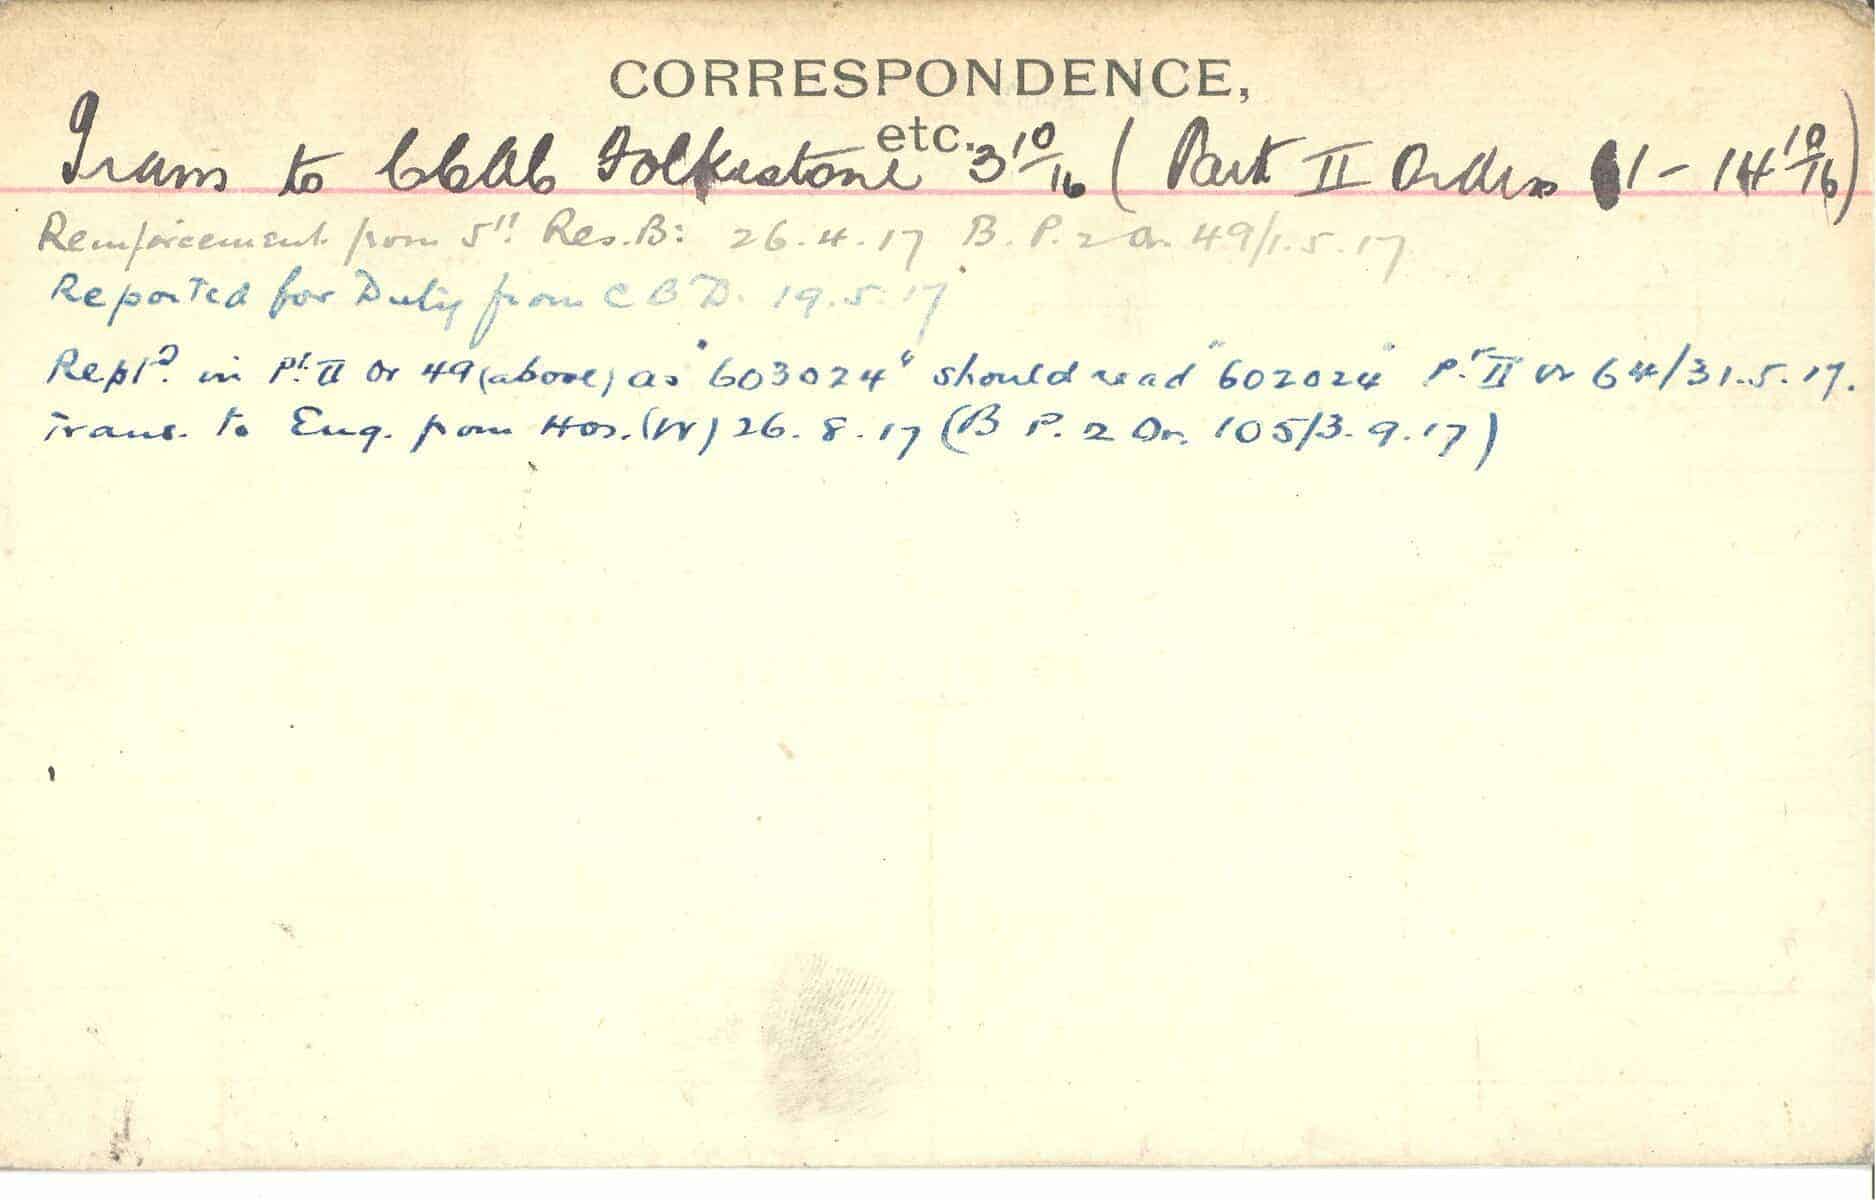 CORRESPONDENCE,
etc.
Trans to CCAC Folkestone 3 10/16 ( Part II Orders 1 - 14 10/16 )
Reinforcement from 5" Res. B: 26.4.17 B. P. 2 Or. 49/1.5.17
Reported for Duty from C B D. 19.5.17
Rept? in Pt. II Or 49 (above) as "603024" should read "602024" Pt. II Or 64/31.5.17.
Trans. to Eng. from Hos. (W) 26.8.17 (B P. 2 Or. 105/3.9.17)